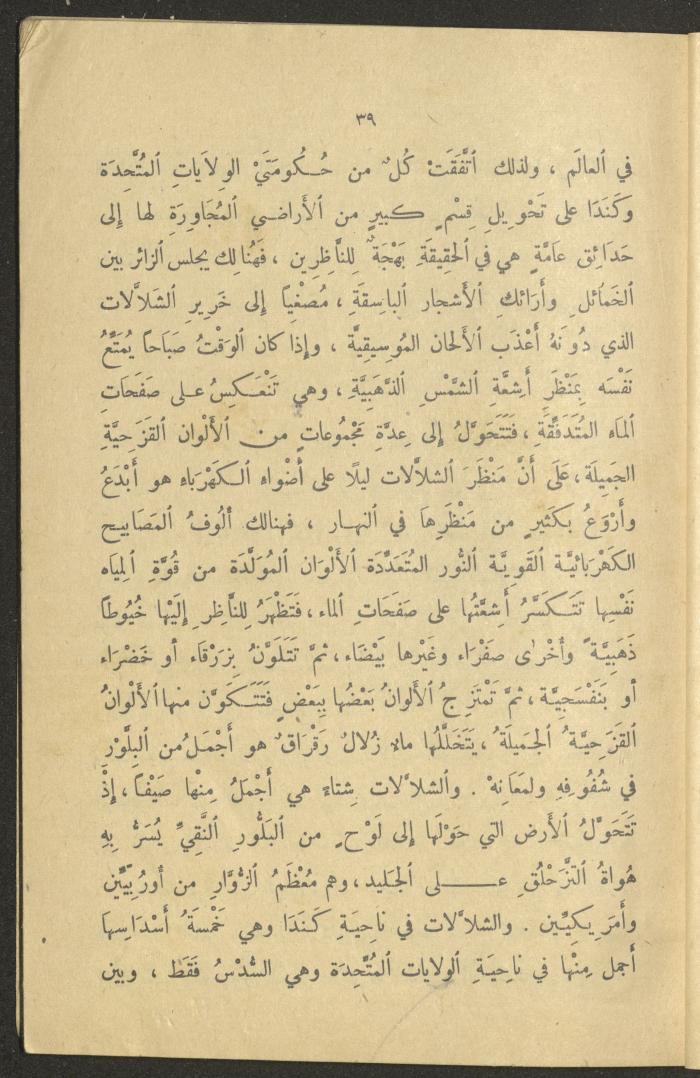 ٣٩
في ٱلعالَم ، ولذلك ٱتَّفَقَتْ كُلٌ من حُكُومَتَيْ الوِلاَياتِ ٱلمُتَّحِدَة
وكَنَدَا على تَحْوِيلِ قِسْمٍ كبيرٍ من ٱلأَراضي ٱلمُجَاوِرَةِ لها إلى
حَدَائِق عَامَّةٍ هي في ٱلحَقِيقَةِ بَهْجَةٌ لِلنَّاظِرِين ، فَهُنالِك يجلس ٱلزائر بين
ٱلخَمَائل وأَرَائك ٱلأشجار ٱلباسِقَةِ ، مُصْغِياً إلى خَرِيرِ ٱلشَّلاَّلات
الذي دُونَهُ أَعْذَب ٱلأَلحان المُوسِيقِيَّة ، وإذا كان ٱلوَقْتُ صَبَاحاً يُمَتِّعُ
نَفْسَه بِمَنْظَرِ أَشِعَّةِ ٱلشَّمْسِ ٱلذَّهَبِيَّةِ ، وهي تَنْعَكِسُ على صَفَحَاتِ
ٱلماءِ المُتَدَفِّقَةِ ، فَتَتَحَوَّلُ إلى عِدَّةِ مَجْمُوعاتٍ من ٱلأَلْوان القَزَحِيَّةِ
الجَمِيلَة ، عَلَى أَنَّ مَنْظَرَ ٱلشلاَّلات ليلًا على أَضْواءِ ٱلكَهْرَباءِ هو أَبْدَعُ
وأَرْوَعُ بكَثيرٍ من مَنْظَرِها في ٱلنهار ، فهنالك أُلُوفُ ٱلمَصَابيح
الكَهْرَبائيَّة ٱلقَوِيَّة ٱلنُّور المُتَعَدِّدَة ٱلأَلْوَان ٱلمُوَلَّدَة من قُوَّةِ ٱلمِياه
نَفْسِها تَتَكَسَّرُ أَشِعَّتُها على صَفَحَاتِ ٱلماء ، فَتَظْهَرُ لِلنَّاظِرِ إِلَيْها خُيُوطاً
ذَهَبِيَّةً وأُخْرٰى صَفْرَاء وغَيْرها بَيْضَاء ، ثمَّ تَتَلَوَّنُ بِزَرْقَاء أو خَضْرَاء
أو بَنَفْسَجِيَّة ، ثمَّ تَمْتَزِجُ ٱلأَلوانُ بَعْضُها بِبَعْضٍ فَتَتَكوَّن منها ٱلأَلْوانُ
ٱلقَزَحِيَّةُ ٱلجَميلَةُ ، يَتَخَلَّلُها ماءٌ زُلالٌ رَقْرَاقٌ هو أَجْمَلُ من ٱلبِلَّوْرِ
في شُفُوفِهِ ولمَعَانِهْ . وٱلشلاَّلات شِتاءً هي أَجْمَلُ مِنْها صَيْفاً ، إِذْ
تَتَحَوَّلُ ٱلأَرض التي حَوْلَها إلى لَوْحٍ من ٱلبَلُّورِ ٱلنَّقِيِّ يُسَرُّ بِهِ
هُواةُ ٱلتَّزَحْلُقِ عـــلى ٱلجَليد ، وهم مُعْظَمُ ٱلزُّوَّارِ من أورُبيِّين
وأَمَرِيكِيِّين . والشلاَّلات في ناحِيَةِ كَنَدَا وهي خَمْسَةُ أَسْدَاسِها
أَجمل مِنْها في ناحِيَةِ ٱلولايات ٱلمُتَّحِدَة وهي السُّدْسُ فَقَط ، وبين